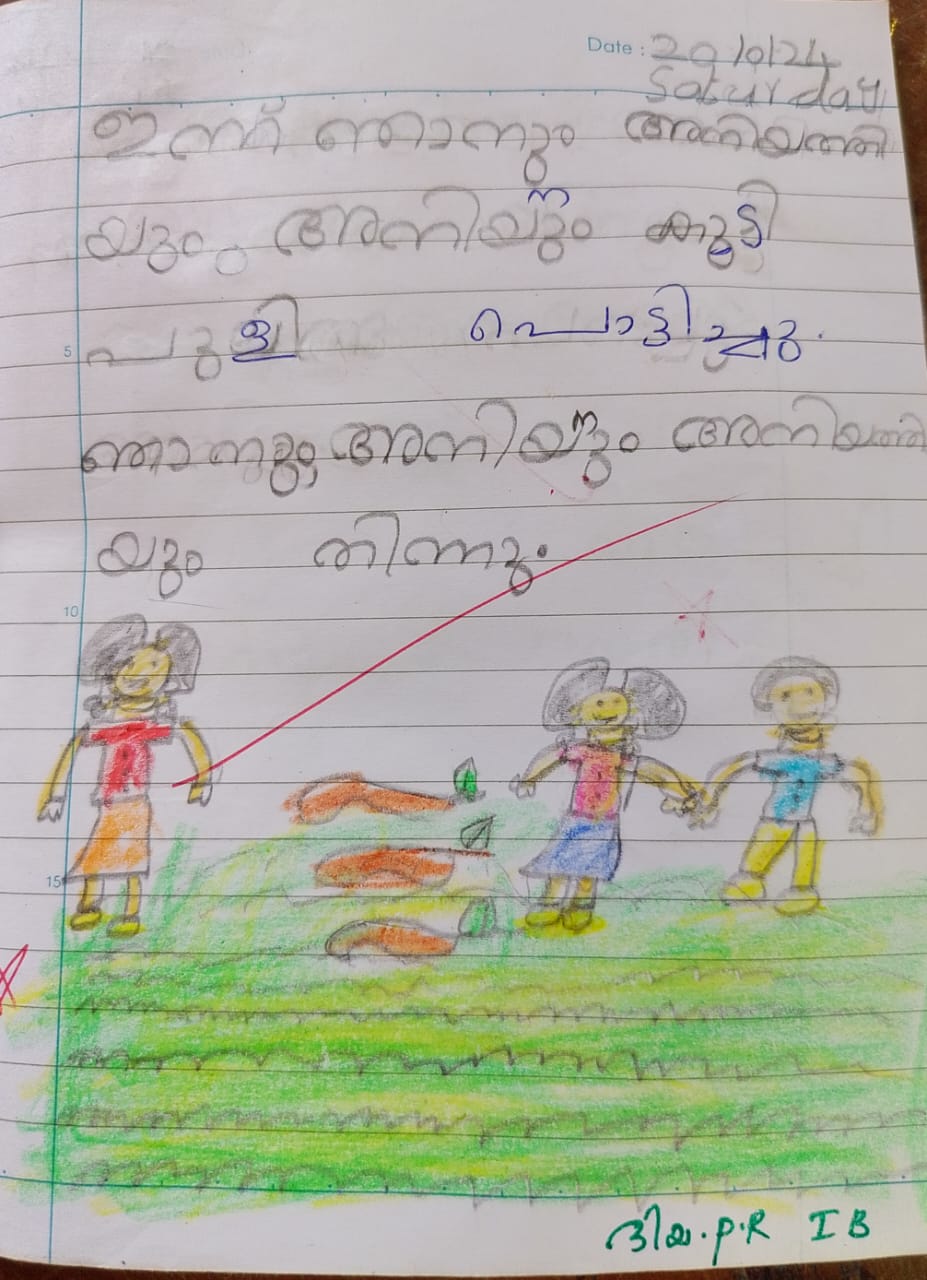 Date : 29/6/24
Saturday
ഇന്ന് ഞാനും അനിയത്തി
യും അനിയനും കൂട്ടി
പുളി പൊട്ടിച്ചു.
5
ഞാനും അനിയനും അനിയത്തി
യും തിന്നും.
10
15
ദിയ.P.R I B